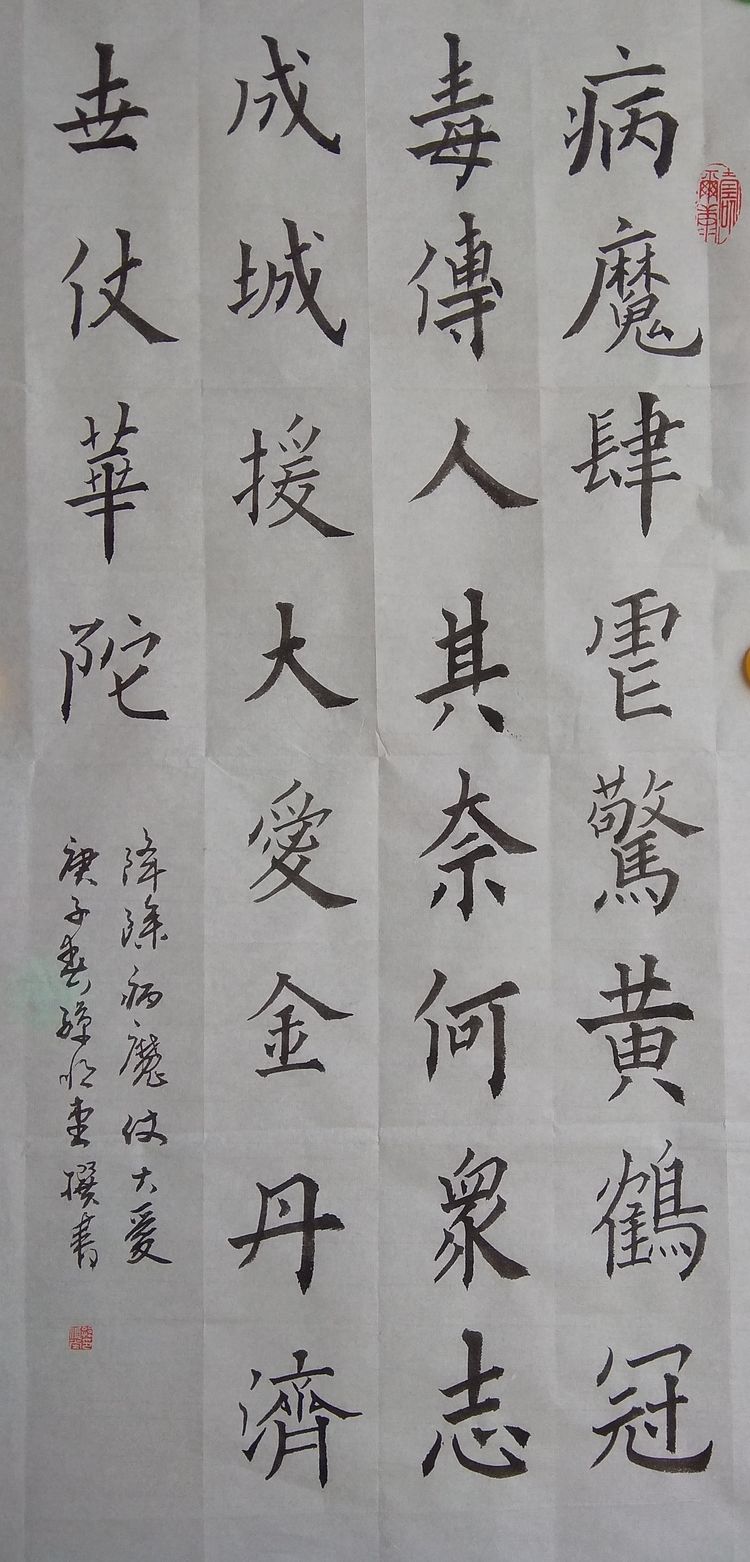 病魔肆虐驚黄鶴冠
毒傳人其奈何衆志
成城援大愛金丹濟
世仗華陀
降除病魔仗大愛
庚子春孫撰書